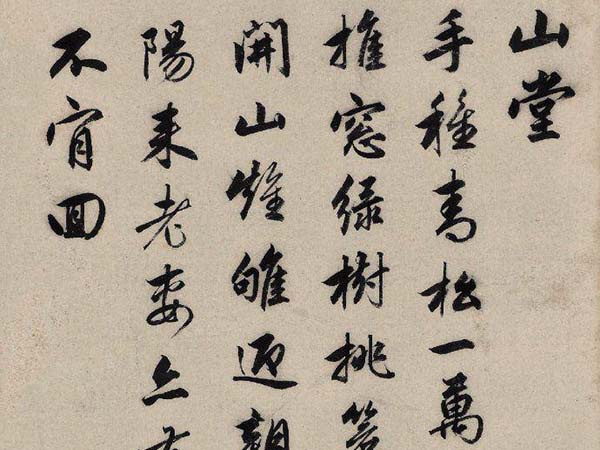 山堂
手種青松一萬
推窓緑樹挑
開山雉雊迎朝
陽来老妻亦
不肯回